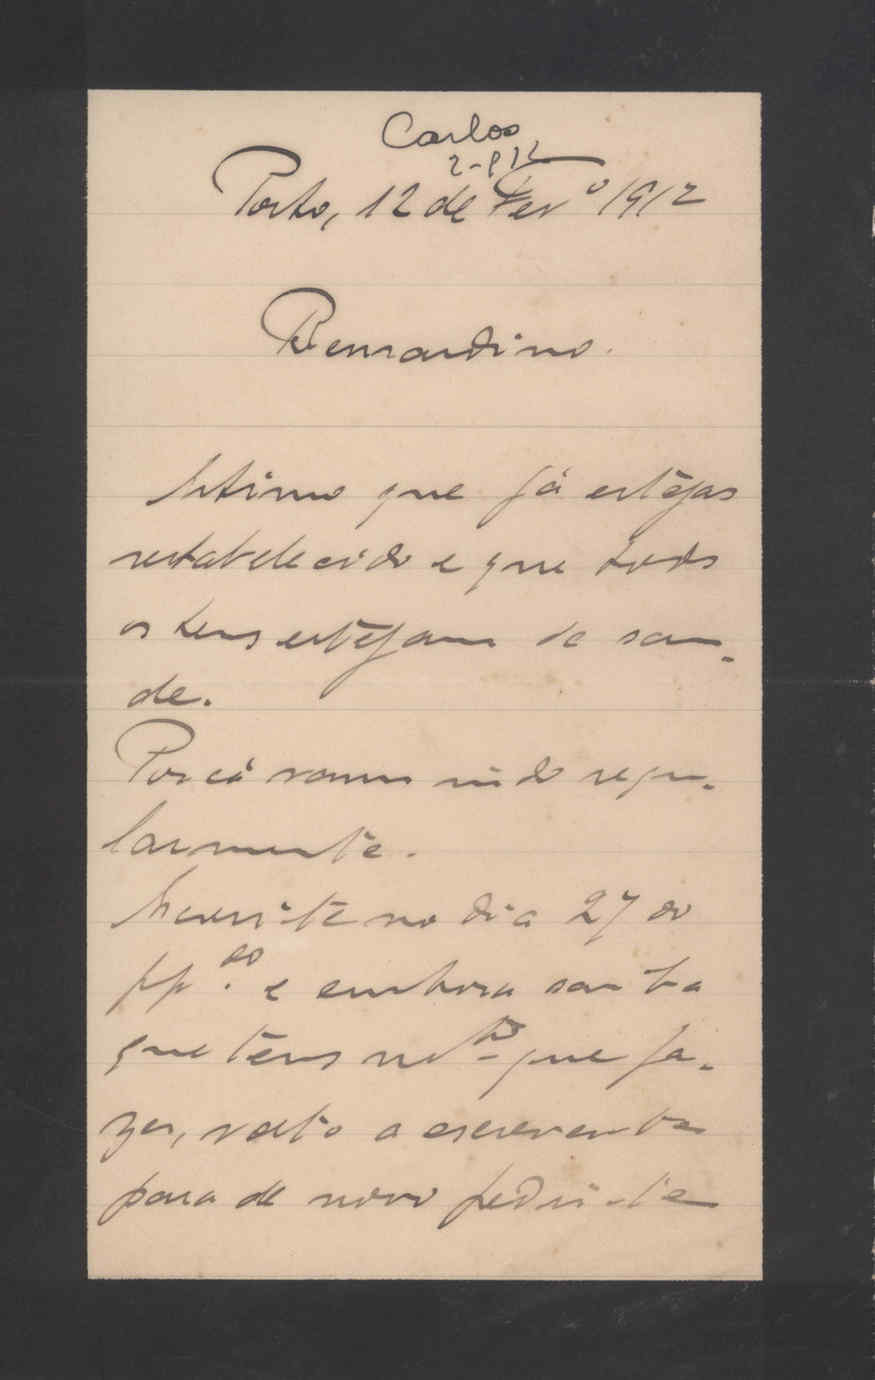 Carlos
2-912
Porto, 12 de Fevº 1912
Bernardino.
Estimo que já estêjas
restabelecido e que todos
os teus estêjam de sau-
de.
Por cá vamos indo regu-
larmente.
Escrevi-te no dia 27 do
pp.do e embora saiba
que tens mto que fa-
zer, volto a escrever-te
para de novo pedir-te